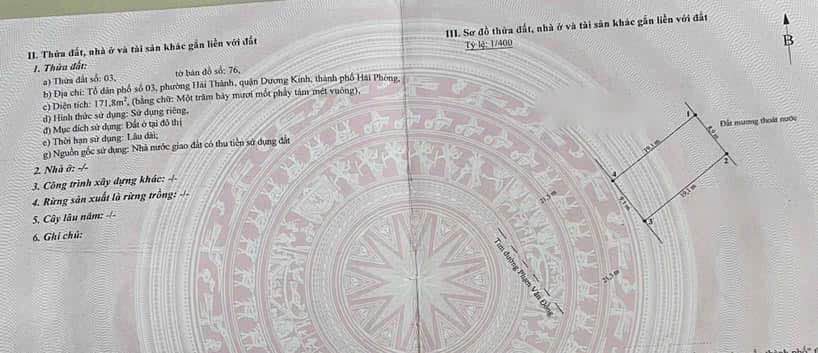 II. Thửa đất, nhà ở và tài sản khác gắn liền với đất
1. Thửa đất:
a) Thửa đất số: 03, tờ bản đồ số: 76,
b) Địa chỉ: Tổ dân phố số 03, phường Hải Thành, quận Dương Kinh, thành phố Hải Phòng,
c) Diện tích: 171,8m², (bằng chữ: Một trăm bảy mươi mốt phẩy tám mét vuông),
d) Hình thức sử dụng: Sử dụng riêng,
đ) Mục đích sử dụng: Đất ở tại đô thị
e) Thời hạn sử dụng: Lâu dài;
g) Nguồn gốc sử dụng: Nhà nước giao đất có thu tiền sử dụng đất
2. Nhà ở: -/-
3. Công trình xây dựng khác: -/-
4. Rừng sản xuất là rừng trồng: -/-
5. Cây lâu năm: -/-
6. Ghi chú:
III. Sơ đồ thửa đất, nhà ở và tài sản khác gắn liền với đất
Tỷ lệ: 1/400
B
1
Đất mương thoát nước
19,1 m
2
4
19,1 m
9,1 m
3
21,5 m
21,5 m
Tim đường Phạm Văn Đồng